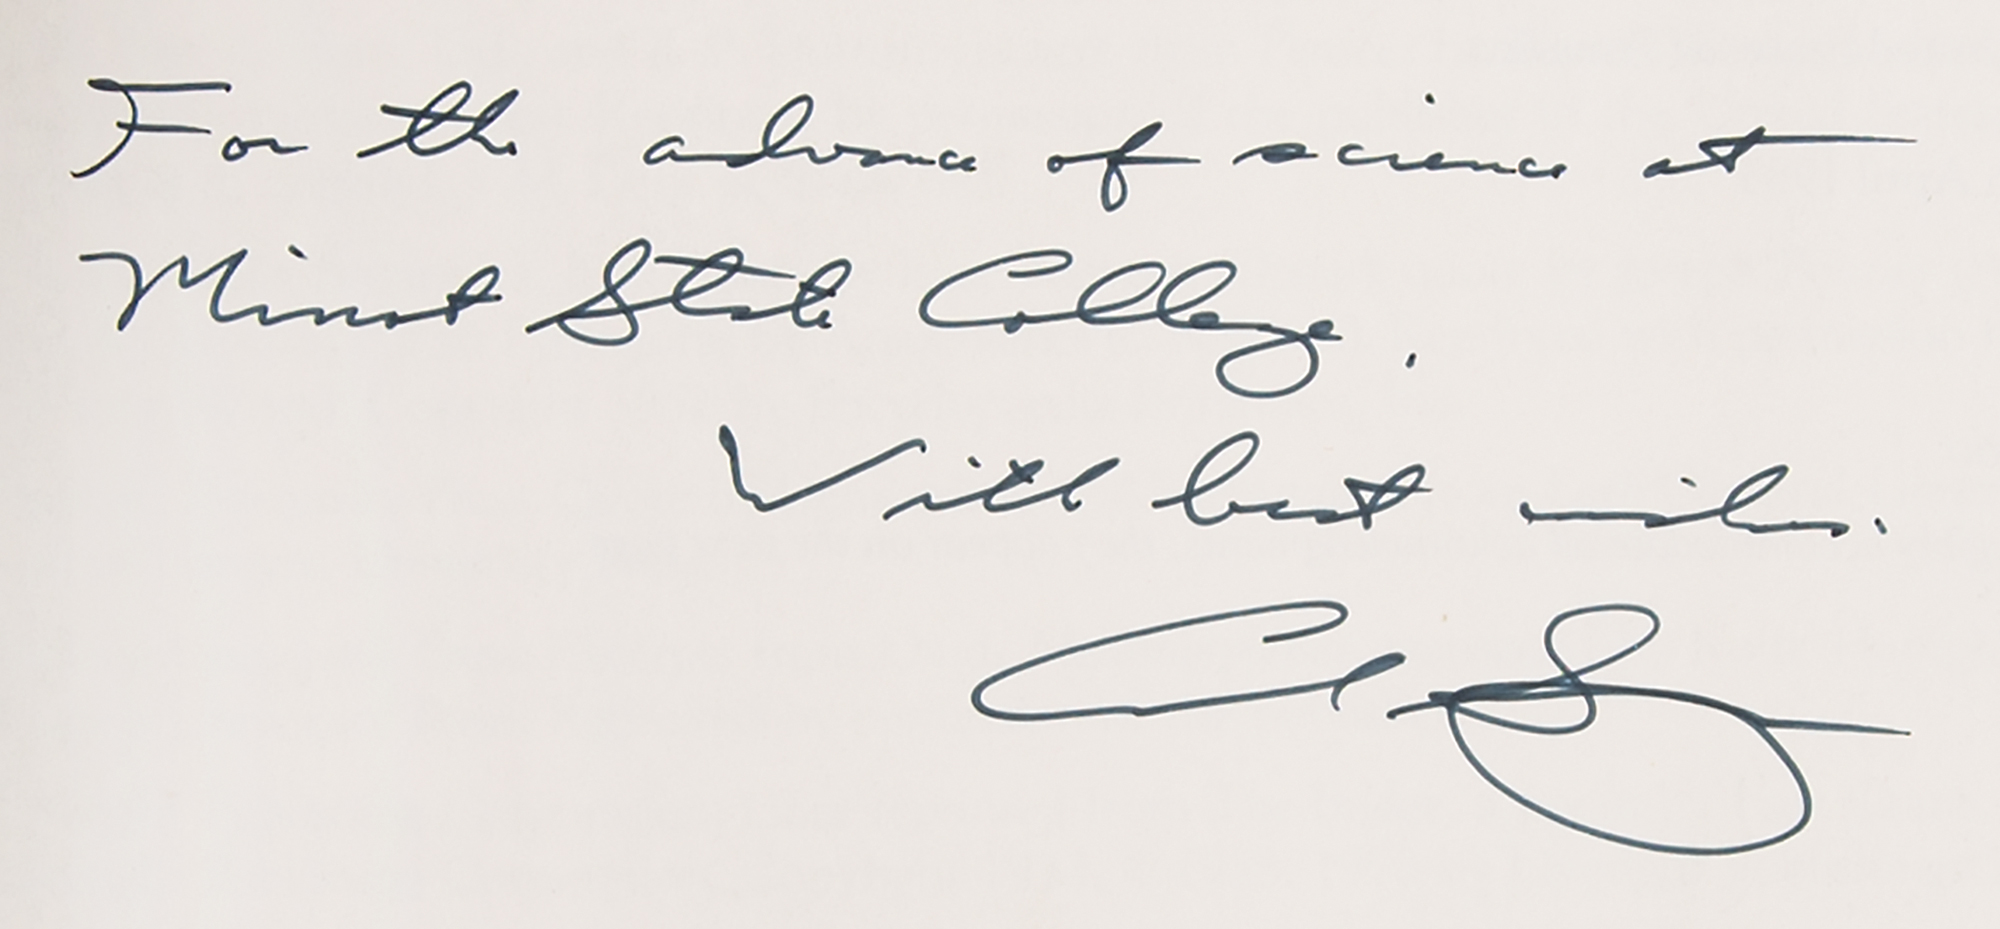 For the advance of science at
Minot State College.
With best wishes.